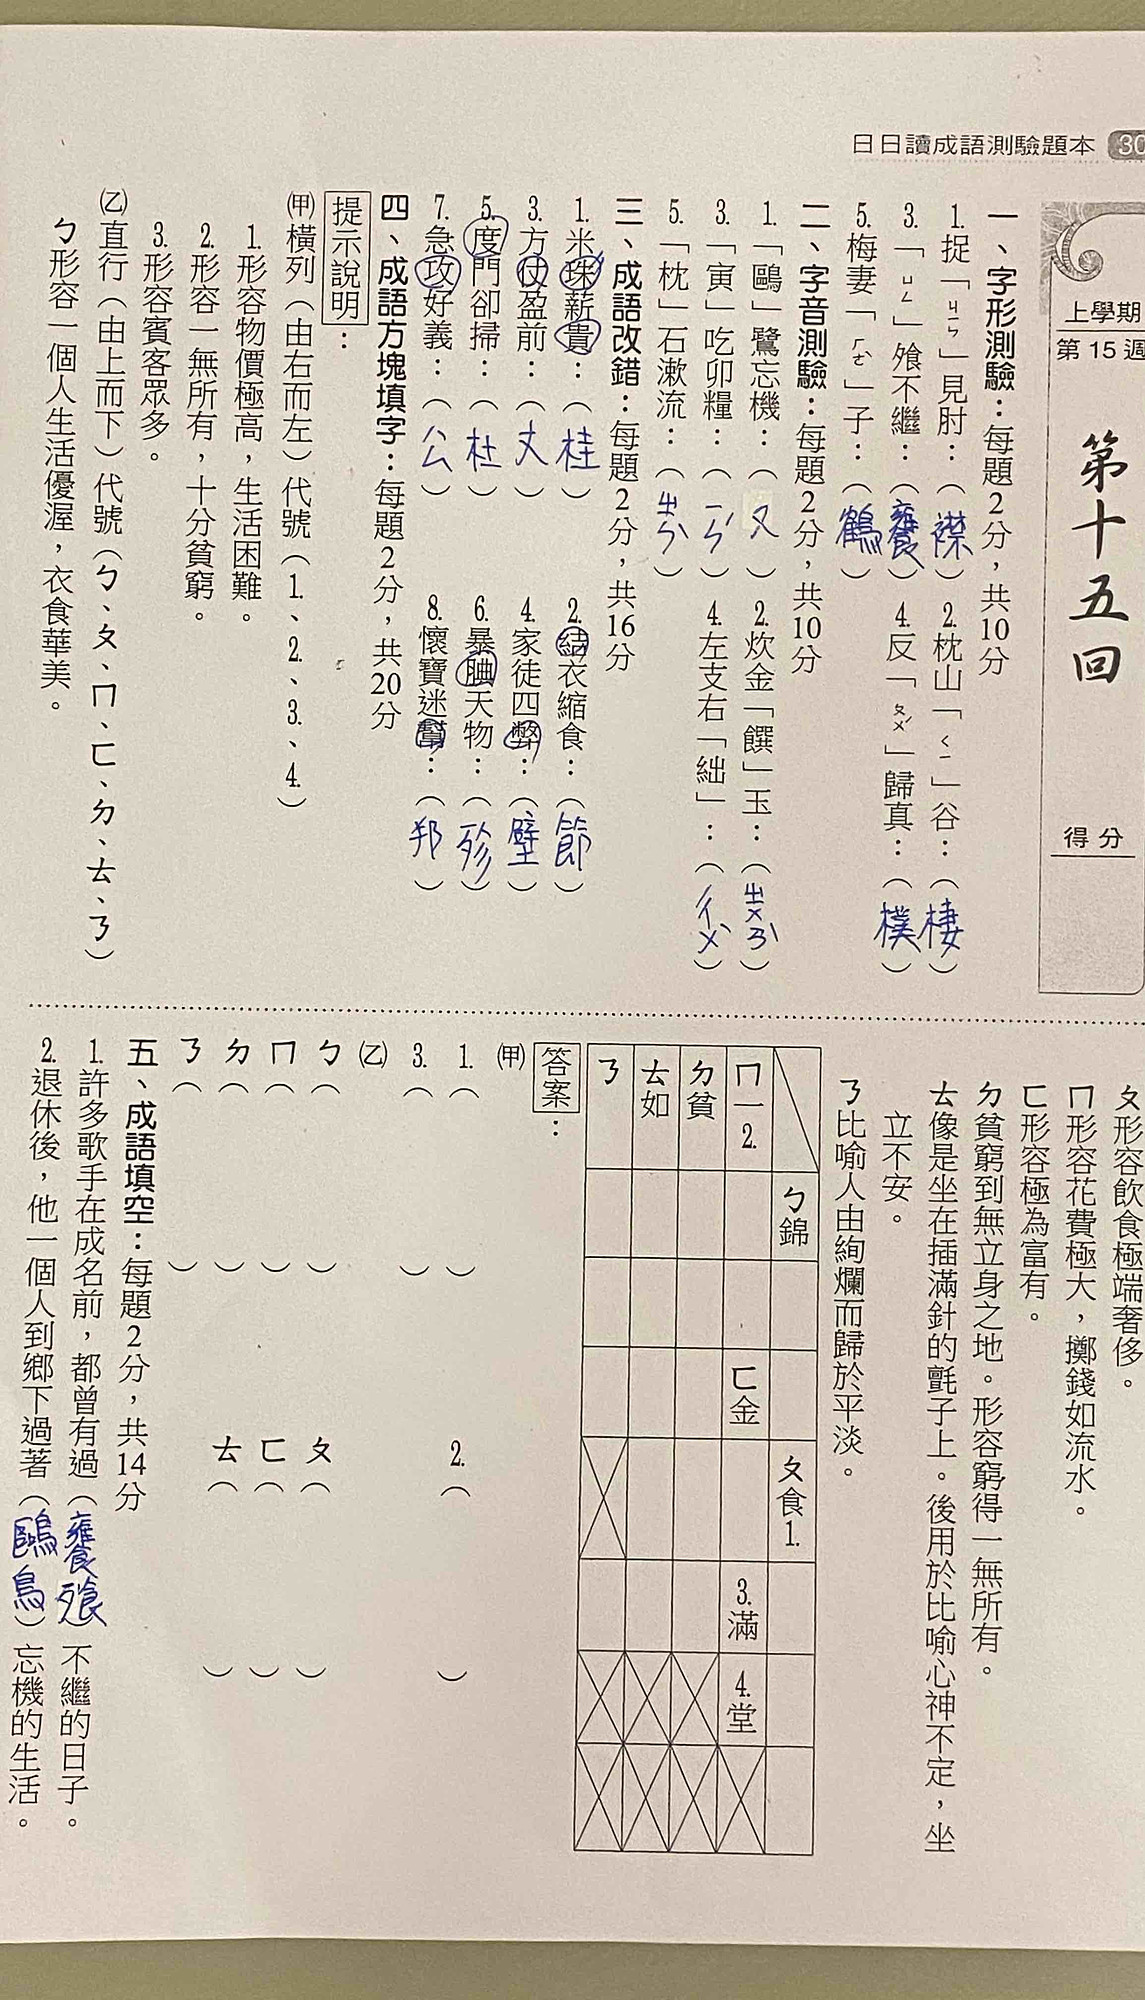 日日讀成語測驗題本 30
上學期
第15週
第十五回
得分
一、字形測驗：每題2分，共10分
1. 捉「ㄐㄧㄣ」見肘：（襟） 2. 枕山「ㄑㄧ」谷：（棲）
3. 「ㄩㄥ」飧不繼：（饔） 4. 反「ㄆㄨˊ」歸真：（樸）
5. 梅妻「ㄏㄜˋ」子：（鶴）
二、字音測驗：每題2分，共10分
1. 「鷗」鷺忘機：（ㄡ） 2. 炊金「饌」玉：（ㄓㄨㄢˋ）
3. 「寅」吃卯糧：（ㄧㄣˊ） 4. 左支右「絀」：（ㄔㄨˋ）
5. 「枕」石漱流：（ㄓㄣˋ）
三、成語改錯：每題2分，共16分
1. 米珠薪貴：（桂） 2. 結衣縮食：（節）
3. 方仗盈前：（丈） 4. 家徒四弊：（壁）
5. 度門卻掃：（杜） 6. 暴腆天物：（殄）
7. 急攻好義：（公） 8. 懷寶迷幫：（邦）
四、成語方塊填字：每題2分，共20分
提示說明：
㈙橫列（由右而左）代號（1.、2.、3.、4.）
1. 形容物價極高，生活困難。
2. 形容一無所有，十分貧窮。
3. 形容賓客眾多。
㈚直行（由上而下）代號（ㄅ、ㄆ、ㄇ、ㄈ、ㄉ、ㄊ、ㄋ）
ㄅ形容一個人生活優渥，衣食華美。
ㄆ形容飲食極端奢侈。
ㄇ形容花費極大，擲錢如流水。
ㄈ形容極為富有。
ㄉ貧窮到無立身之地。形容窮得一無所有。
ㄊ像是坐在插滿針的氈子上。後用於比喻心神不定，坐
立不安。
ㄋ比喻人由絢爛而歸於平淡。
ㄅ錦 ㄆ食1.
ㄇ一2. ㄈ金 3.滿 4.堂
ㄉ貧
ㄊ如
ㄋ
答案：
㈙
1.（ ） 2.（ ）
3.（ ）
㈚
ㄅ（ ） ㄆ（ ）
ㄇ（ ） ㄈ（ ）
ㄉ（ ） ㄊ（ ）
ㄋ（ ）
五、成語填空：每題2分，共14分
1. 許多歌手在成名前，都曾有過（饔飧）不繼的日子。
2. 退休後，他一個人到鄉下過著（鷗鳥）忘機的生活。